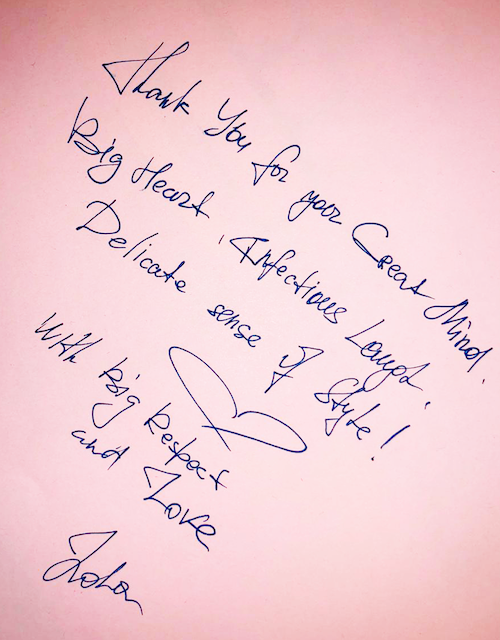 Thank You for your Great Mind,
Big Heart, Infectious Laugh,
Delicate sense of Style!
With Big Respect
and Love